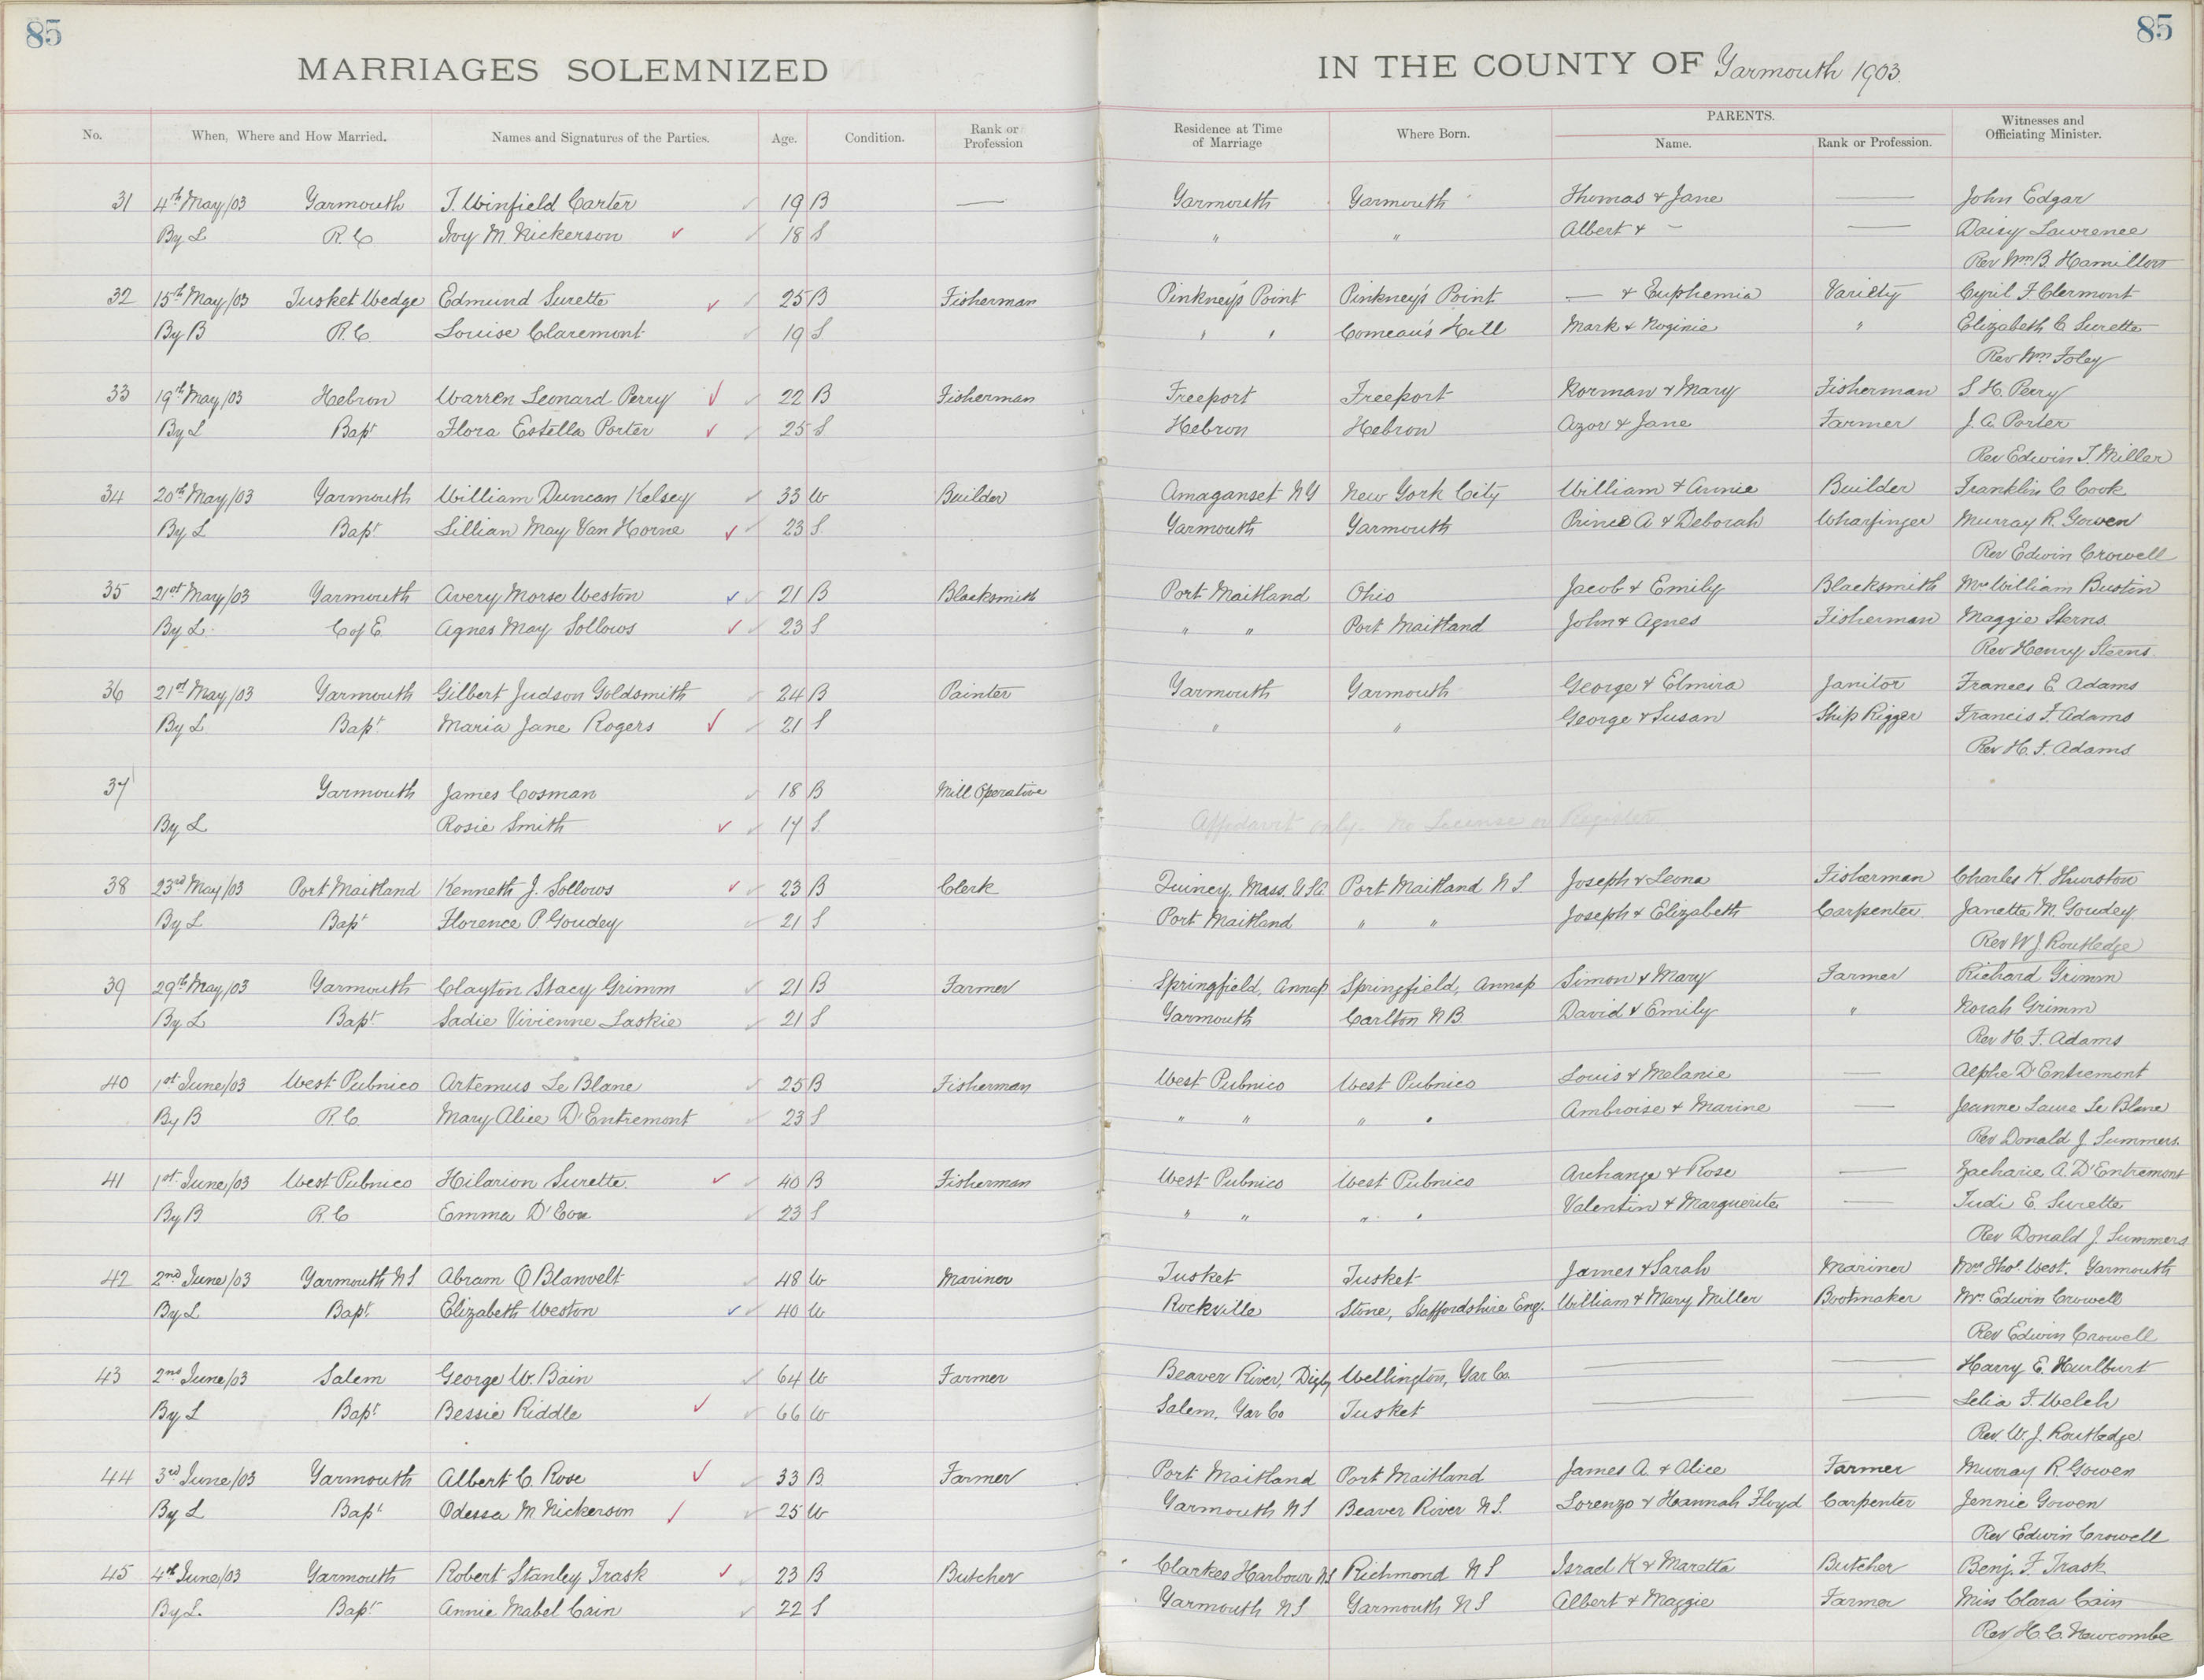 85 85
MARRIAGES SOLEMNIZED IN THE COUNTY OF Yarmouth 1903.
No. When, Where and How Married. Names and Signatures of the Parties. Age. Condition. Rank or Profession Residence at Time of Marriage Where Born. PARENTS. Name. Rank or Profession. Witnesses and Officiating Minister.
31 4th May/03 Yarmouth J. Winfield Carter 19 B — Yarmouth Yarmouth Thomas & Jane — John Edgar
By L R.C Ivy M Nickerson 18 S " " Albert & — — Daisy Lawrence
Rev Wm B. Hamilton
32 15th May/03 Tusket Wedge Edmund Surette 25 B Fisherman Pinkney's Point Pinkney's Point — & Euphemia Variety Cyril F Clermont
By B R.C Louise Claremont 19 S " " Comeau's Hill Mark & " Elizabeth C Surette
Rev Wm Foley
33 19th May/03 Hebron Warren Leonard Perry 22 B Fisherman Freeport Freeport Norman & Mary Fisherman S H. Perry
By L Bapt Flora Estella Porter 25 S Hebron Hebron Azor & Jane Farmer J. A. Porter
Rev Edwin T. Miller
34 20th May/03 Yarmouth William Duncan Kelsey 33 W Builder Amaganset NY New York City William & Annie Builder Franklin C Cook
By L Bapt Lillian May Van Horne 23 S Yarmouth Yarmouth Prince A. & Deborah Wharfinger Murray R. Gowen
Rev Edwin Crowell
35 21st May/03 Yarmouth Avery Morse Weston 21 B Blacksmith Port Maitland Ohio Jacob & Emily Blacksmith Mrs William Bustin
By L. C of E Agnes May Sollows 23 S " " Port Maitland John & Agnes Fisherman Maggie Sterns.
Rev Henry Sterns.
36 21st May/03 Yarmouth Gilbert Judson Goldsmith 24 B Painter Yarmouth Yarmouth George & Elmira Janitor Frances E Adams
By L Bapt Maria Jane Rogers 21 S " " George & Susan Ship Rigger Francis F. Adams
Rev H. F. Adams
37 Yarmouth James Cosman 18 B Mill Operative
By L Rosie Smith 17 S Affidavit only. No License or Register
38 23rd May/03 Port Maitland Kenneth J. Sollows 23 B Clerk Quincy, Mass. USA Port Maitland N S Joseph & Leona Fisherman Charles K. Thurston
By L Bapt Florence P. Goudey 21 S Port Maitland " " Joseph & Elizabeth Carpenter Janette M. Goudey
Rev W J Routledge
39 29th May/03 Yarmouth Clayton Stacy Grimm 21 B Farmer Springfield, Annap Springfield, Annap Simon & Mary Farmer Richard Grimm
By L Bapt Sadie Vivienne Laskie 21 S Yarmouth Carlton N B. David & Emily " Norah Grimm
Rev H. F. Adams
40 1st June/03 West Pubnico Artemus Le Blanc 25 B Fisherman West Pubnico West Pubnico Louis & Melanie — Alphe D'Entremont
By B R.C Mary Alice D'Entremont 23 S " " " " Ambroise & Marine — Jeanne Laure Le Blanc
Rev Donald J Summers.
41 1st June/03 West Pubnico Hilarion Surette. 40 B Fisherman West Pubnico West Pubnico Archange & Rose — Zacharie A. D'Entremont
By B R.C Emma D'Eon 23 S " " " " Valentin & Marguerite — Judi E. Surette
Rev Donald J. Summers
42 2nd June/03 Yarmouth N S Abram Q Blanvelt 48 W Mariner Tusket Tusket James & Sarah Mariner Mrs Thos. West. Yarmouth
By L Bapt Elizabeth Weston 40 W Rockville Stone, Staffordshire Eng. William & Mary Miller Bootmaker Mrs Edwin Crowell
Rev Edwin Crowell
43 2nd June/03 Salem George W. Bain 64 W Farmer Beaver River, Digby Wellington, Yar Co. — — Harry E. Hurlburt
By L Bapt Bessie Riddle 66 W Salem, Yar Co Tusket — — Lelia F. Welch
Rev. W. J. Routledge
44 3rd June/03 Yarmouth Albert C. Rose 33 B Farmer Port Maitland Port Maitland James A. & Alice Farmer Murray R. Gowen
By L Bapt Odessa M Nickerson 25 W Yarmouth N S Beaver River N S. Lorenzo & Hannah Floyd Carpenter Jennie Gowen
Rev Edwin Crowell
45 4th June/03 Yarmouth Robert Stanley Trask 23 B Butcher Clarkes Harbour N S Richmond N S Israel K & Maretta Butcher Benj. F. Trask
By L. Bapt Annie Mabel Cain 22 S Yarmouth N S Yarmouth N S Albert & Maggie Farmer Miss Clara Cain
Rev H. C. Newcombe